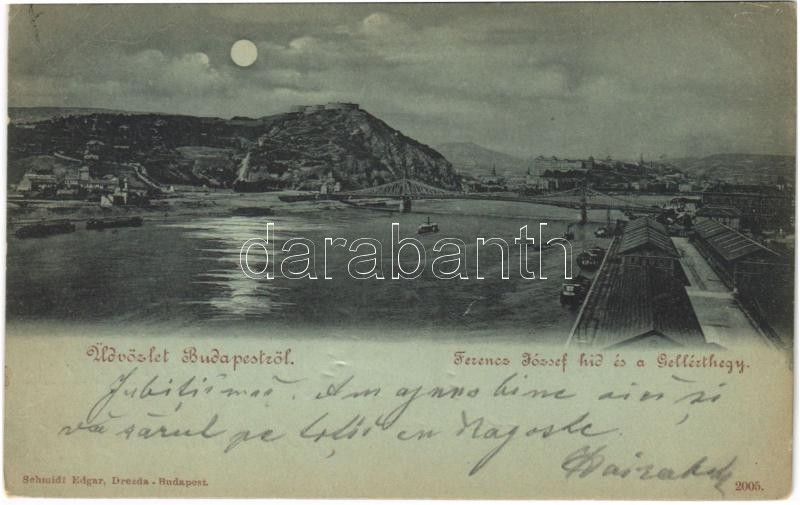 darabanth
Üdvözlet Budapestről.
Ferencz József hid és a Gellérthegy.
Am ajuns bine aici și
vă sărut pe toți
Schmidt Edgar, Drezda - Budapest.
2005.